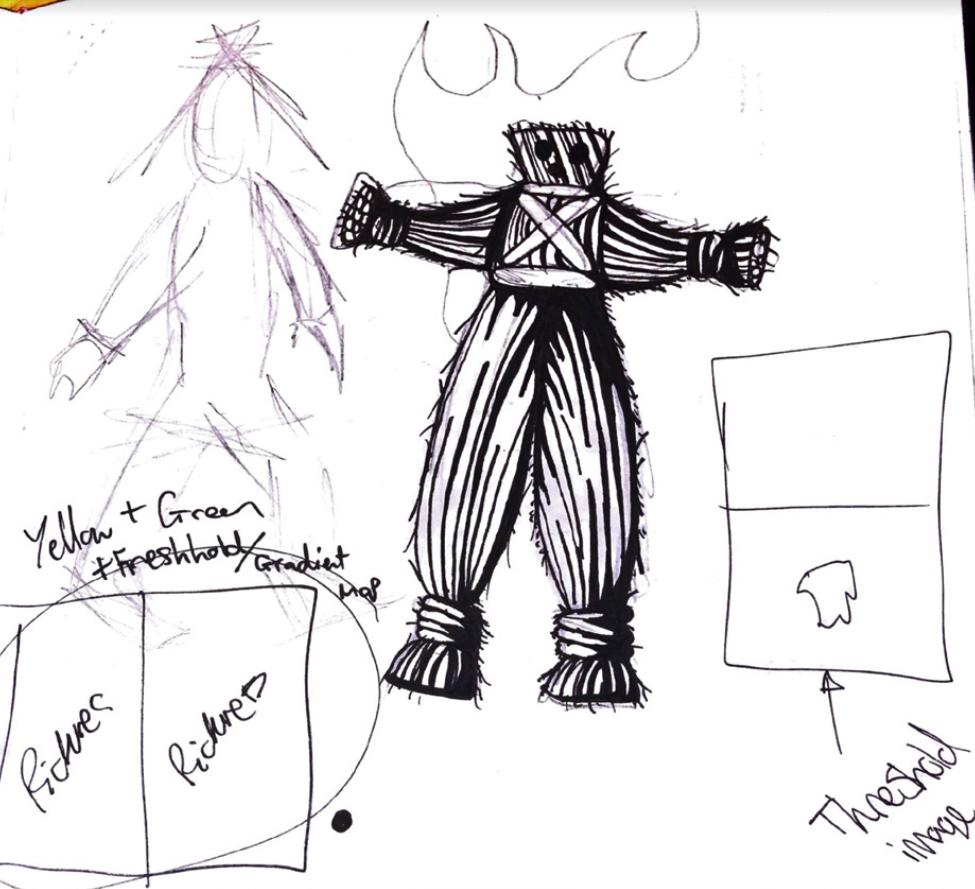 Yellow + Green
+ Freshhold/Gradient
Map
Pictures
Pictures
Threshold
image